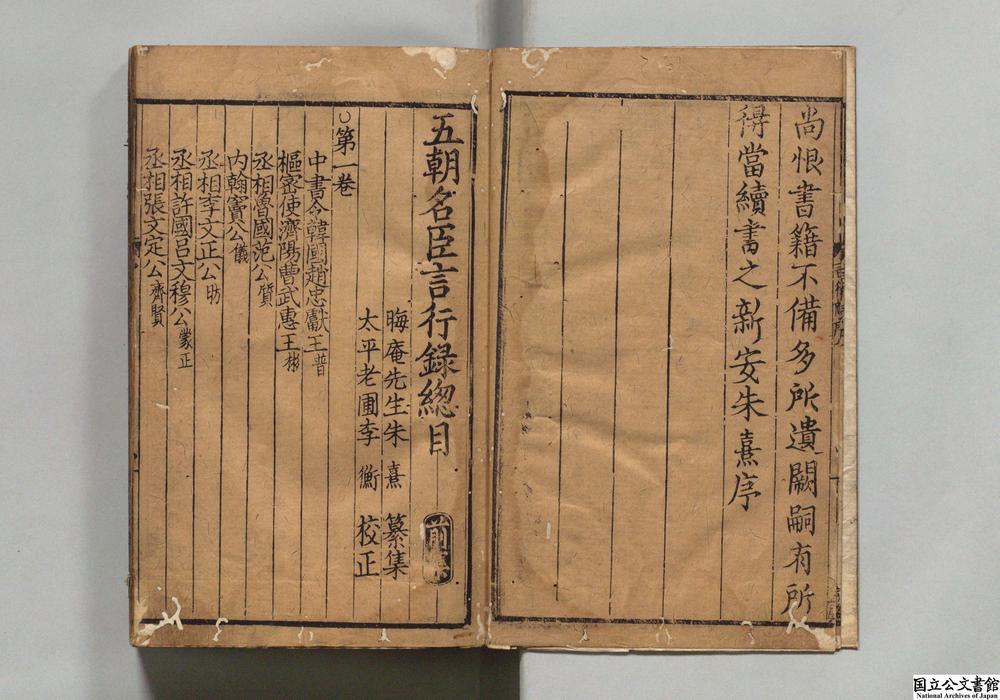 尚恨書籍不備多所遺闕嗣有所
得當續書之新安朱熹序
五朝名臣言行録緫目
前集
晦庵先生朱熹纂集
太平老圃李衡校正
○第一卷
中書令韓國趙忠獻王普
樞密使濟陽曹武惠王彬
丞相魯國范公質
内翰竇公儀
丞相李文正公昉
丞相許國吕文穆公蒙正
丞相張文定公齊賢
国立公文書館
National Archives of Japan